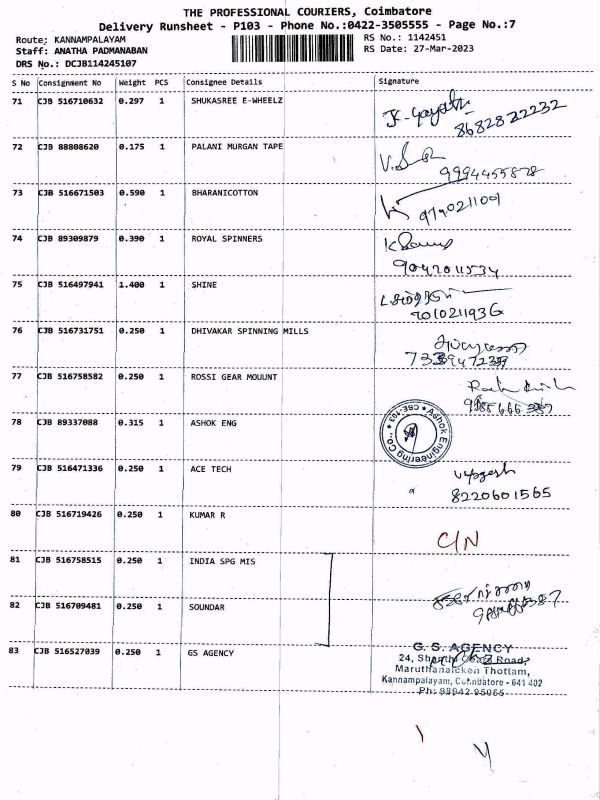 THE PROFESSIONAL COURIERS, Coimbatore
Delivery Runsheet - P103 - Phone No.:0422-3505555 - Page No.:7
Route; KANNAMPALAYAM
RS No.: 1142451
Staff: ANATHA PADMANABAN
RS Date: 27-Mar-2023
DRS No.: DCJB114245107
S No Consignment No Weight PCS Consignee Details Signature
71 CJB 516710632 0.297 1 SHUKASREE E-WHEELZ
8682822232
72 CJB 88808620 0.175 1 PALANI MURGAN TAPE
9994455878
73 CJB 516671503 0.590 1 BHARANICOTTON
74 CJB 89309879 0.390 1 ROYAL SPINNERS
9042011534
75 CJB 516497941 1.400 1 SHINE
76 CJB 516731751 0.250 1 DHIVAKAR SPINNING MILLS
77 CJB 516758582 0.250 1 ROSSI GEAR MOUUNT
78 CJB 89337088 0.315 1 ASHOK ENG
Ashok Engineering Co., CBE-103
79 CJB 516471336 0.250 1 ACE TECH
8220601565
80 CJB 516719426 0.250 1 KUMAR R
C/N
81 CJB 516758515 0.250 1 INDIA SPG MIS
82 CJB 516709481 0.250 1 SOUNDAR
83 CJB 516527039 0.250 1 GS AGENCY
G. S. AGENCY
24, Road,
Thottam,
Kannampalayam, Coimbatore - 641 402
Ph: 98942 95065